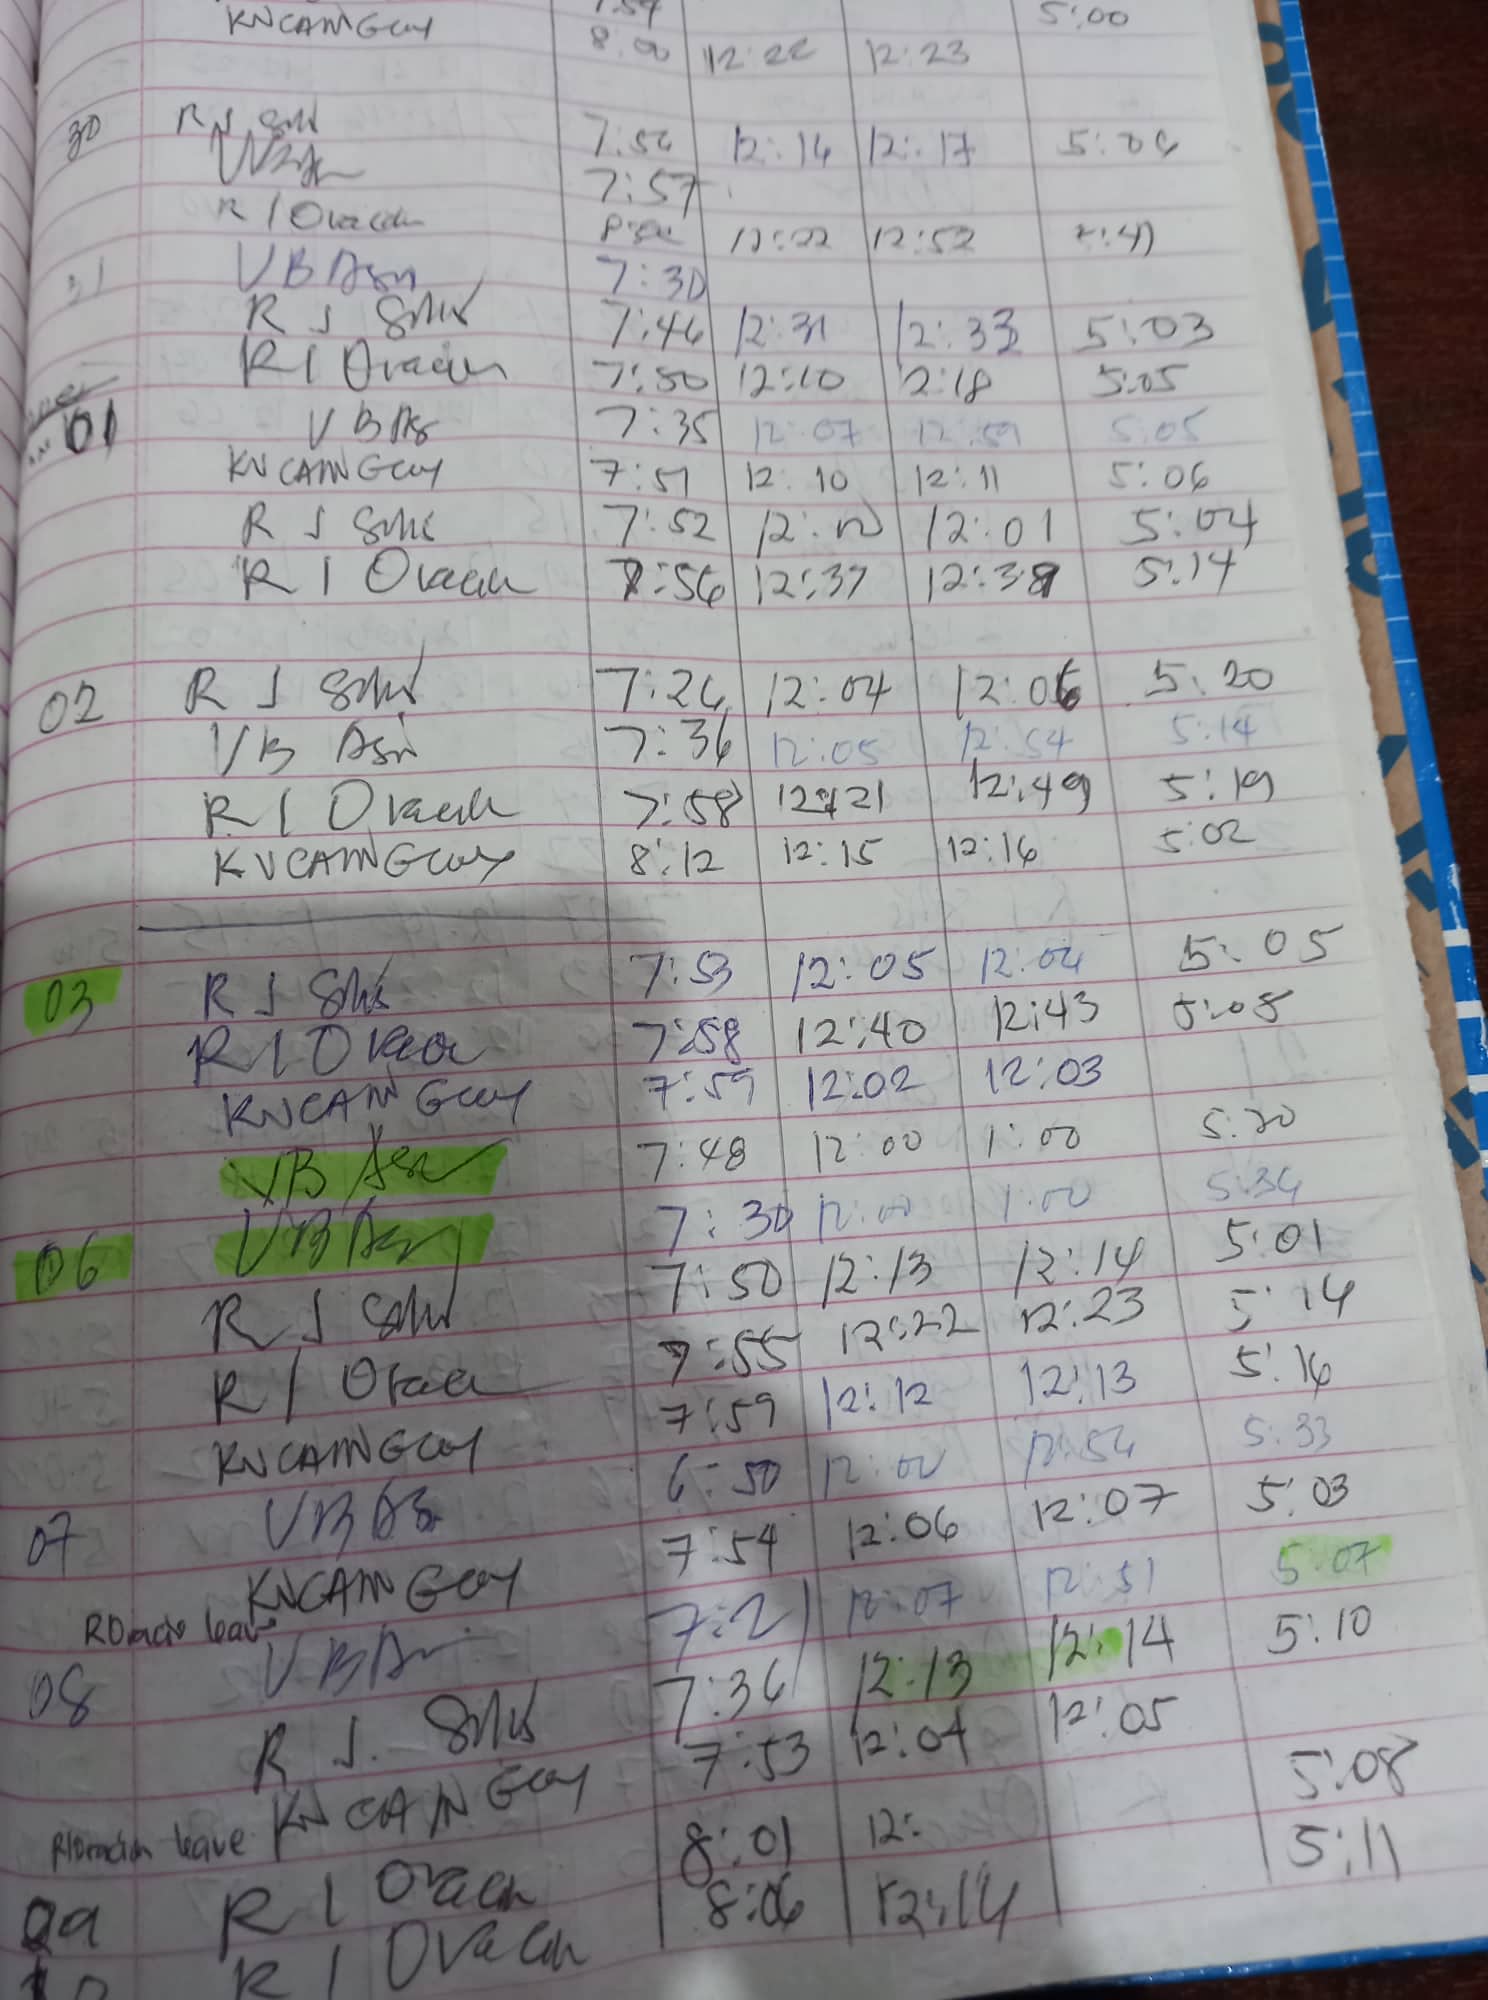 KNCAMNGUAY 7:59 5:00
8:00 12:22 12:23
30 R J 7:56 12:14 12:17 5:06
7:57
R I Oracion 12:22 12:52
31 VB Asn 7:30
R J Solis 7:46 12:31 12:33 5:03
R I Oracion 7:50 12:10 12:18 5:05
01 VB As 7:35 12:07 12:59 5:05
KNCAMNGUAY 7:51 12:10 12:11 5:06
R J Solis 7:52 12:00 12:01 5:04
R I Oracion 7:56 12:37 12:38 5:14
02 R J Solis 7:26 12:04 12:06 5:20
VB Asn 7:36 12:05 12:54 5:14
R I Oracion 7:58 12:21 12:49 5:19
KNCAMNGUAY 8:12 12:15 12:16 5:02
03 R J Solis 7:53 12:05 12:06 5:05
R I Oracion 7:58 12:40 12:43 5:08
KNCAMNGUAY 7:59 12:02 12:03
VB Asn 7:48 12:00 1:00 5:20
06 VB Asn 7:30 12:00 1:00 5:36
R J Solis 7:50 12:13 12:14 5:01
R I Oracion 7:55 12:22 12:23 5:14
KNCAMNGUAY 7:59 12:12 12:13 5:16
07 VB As 6:50 12:00 12:54 5:33
KNCAMNGUAY 7:54 12:06 12:07 5:03
ROracio leave
08 VB As 7:21 12:07 12:51 5:07
R J. Solis 7:36 12:13 12:14 5:10
KNCAMNGUAY 7:53 12:04 12:05
RIOracion leave
09 R I Oracion 8:01 12: 5:08
10 R I Oracion 8:06 12:14 5:11